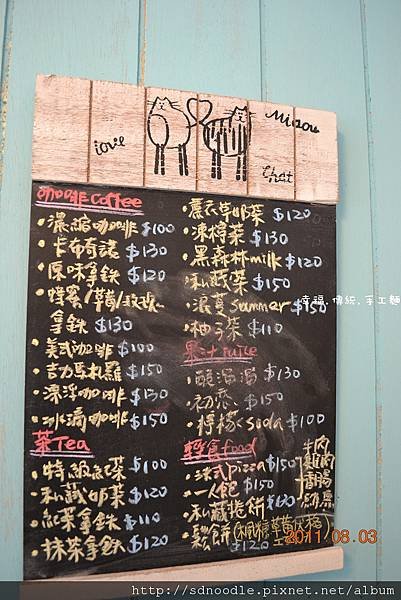 love
Miaou
Chat
咖啡coffee
•濃縮咖啡$100
•卡布奇諾$130
•原味拿鐵$120
•蜂蜜/草莓/玫瑰
拿鐵$130
•美式咖啡$100
•吉力馬札羅$150
•漂浮咖啡$130
•冰滴咖啡$150
茶Tea
•特級紅茶$100
•私藏奶茶$120
•紅茶拿鐵$110
•抹茶拿鐵$120
•薰衣草奶茶$120
•凍檸茶$130
•黑森林milk$120
•私藏茶$150
•浪漫summer$150
•柚子茶$110
果汁Juice
•酸溜溜$130
•初恋$150
•檸檬soda$100
輕食food
•法式pizza$150
•一人飽$150
•私藏捲餅$130
•鬆餅(楓糖草莓
$120
牛肉
雞肉
香腸
鮪魚
幸福.傳統.手工麵
2011.08.03
http://sdnoodle.pixnet.net/album